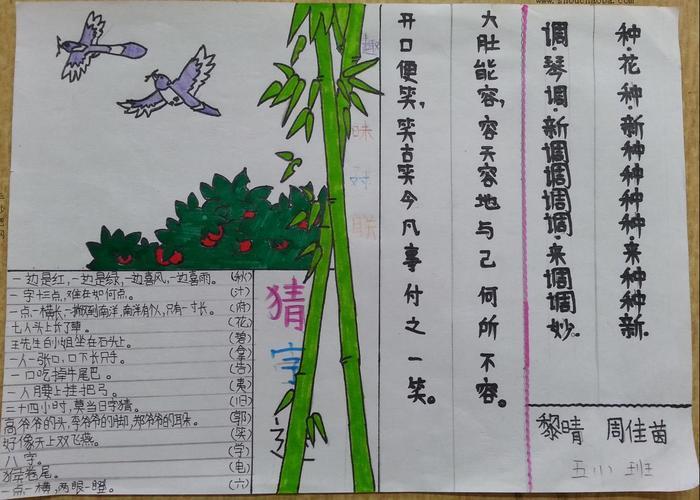 www.shouchaobao.com
种·花种·新种种种种来种种新.
调琴调·新调调调调来调调妙.
大肚能容，容天容地与己何所不容。
开口便笑，笑古笑今凡事付之一笑。
趣味对联
猜字
一边是红，一边是绿，一边喜风，一边喜雨。(秋)
一字十三点，难在如何点。(汁)
一点一横长，一撇到南洋，南洋有个人，只有一寸长。(府)
七人头上长了草。(花)
王先生白小姐坐在石头上。(碧)
一人一张口，口下长只手。(拿)
一口吃掉牛尾巴。(告)
一人腰上挂把弓。(夷)
二十四小时，莫当日字猜。(旧)
高爷爷的头，李爷爷的脚，郑爷爷的耳朵。(郭)
好像天上双飞燕。(笑)
八字。(学)
卷尾。(电)
一点一横，两眼一瞪。(六)
黎晴 周佳茵
五班